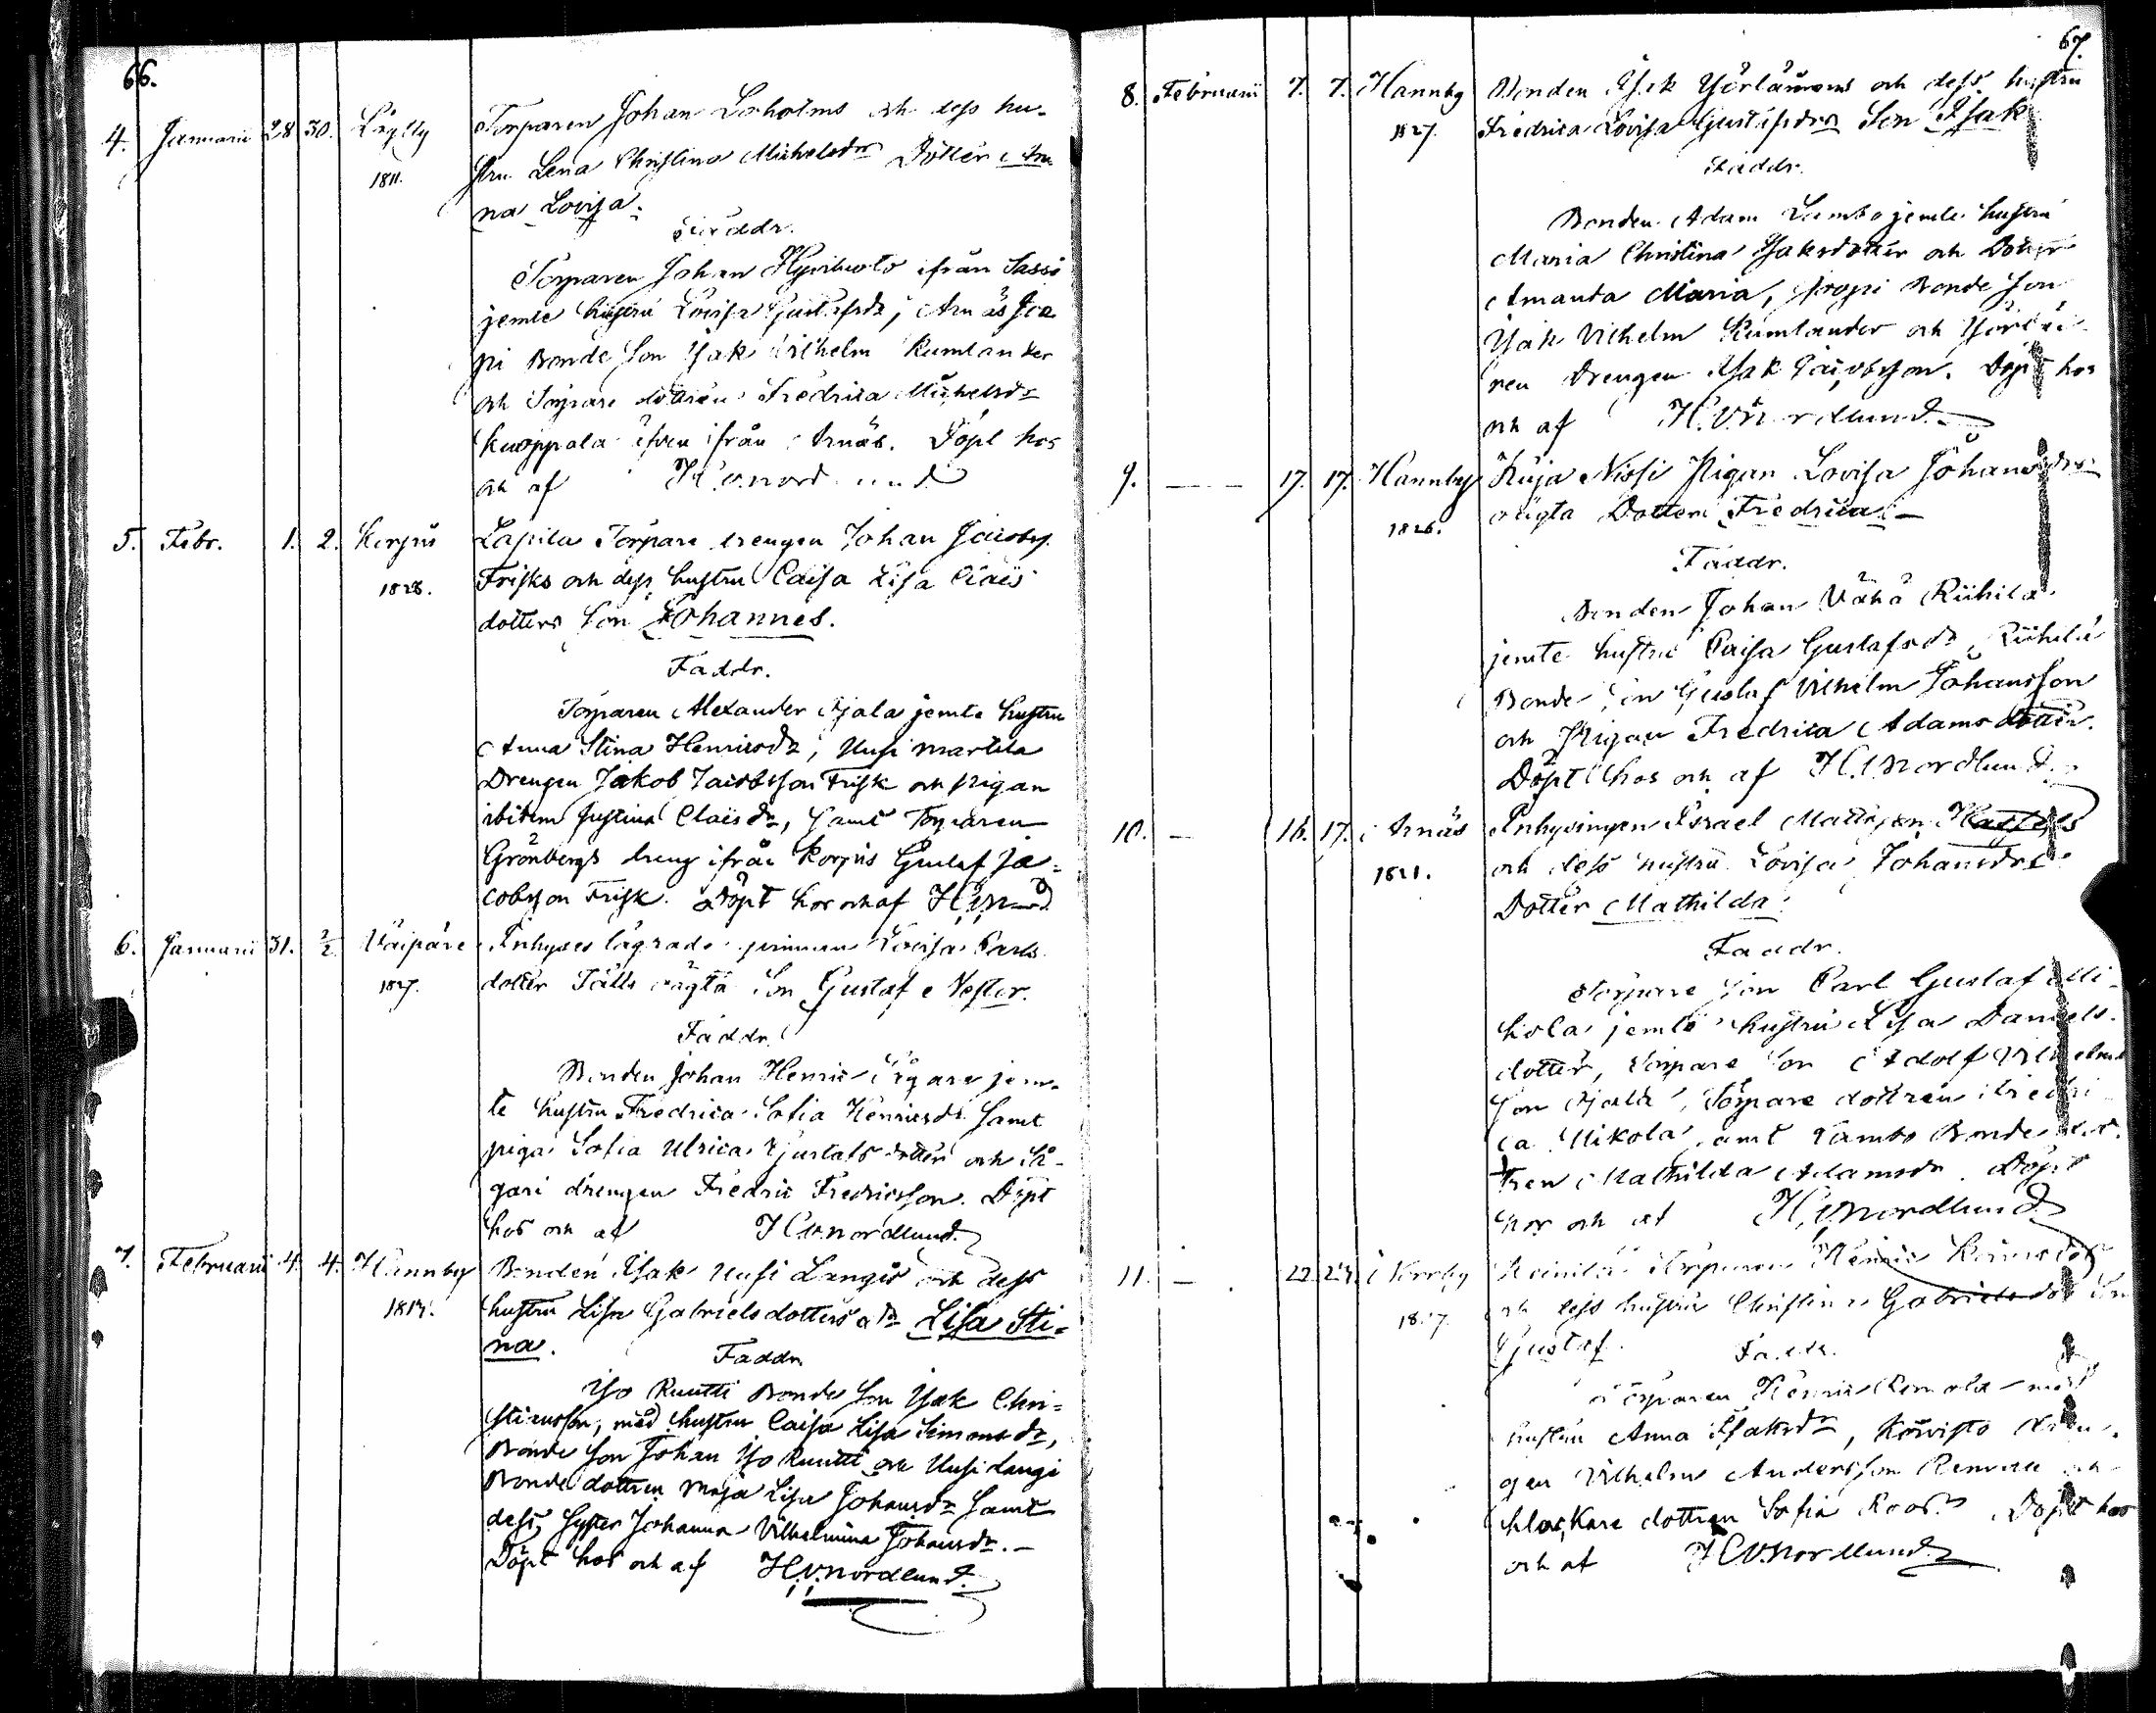 66.
4. Januarii 28 30. Torparen Johan Loholms och dess hu-
1811. stru Lena Christina Michelsdr Dotter An
na Lovisa.
Faddr.
Torparen Johan ifrån Sassi
jemte hustru Lovisa Gustafsdr, Arnäs Joa
pi Bonde Son Isak Vilhelm Rumlander
och Torpare dottren Fredrica Michelsdr
Kuoppala även ifrån Arnäs. Döpt hos
och af H.V. Nordlund
5. Febr. 1. 2. Korpis Lapila Torpare drengen Johan Jacobs.
1828. Frisks och dess hustru Caisa Lisa Clais
dotters Son Johannes.
Faddr.
Torparen Alexander Ojala jemte hustru
Anna Stina Henricsdr, Uusi Martila
Drengen Jakob Jacobsson Frisk och pigan
ibidem Justina Claisdr, samt Torparen
Grönbergs dreng ifrån Korpis Gustaf Ja-
cobsson Frisk. Döpt hos och af H.V.N-d.
6. Januarii 31. 2/2 Vaipäre Inhyses Lovisa Carls
1827. dotter Fälts oägta Son Gustaf Nestor.
Faddr.
Bonden Johan Henric Sägare jem-
te hustru Fredrica Sofia Henricsdr samt
piga Sofia Ulrica Gustafsdotter och Sä-
gari drengen Fredric Fredricsson. Döpt
hos och af H.V. Nordlund.
7. Februarii 4. 4. Hannby Bonden Isak Uusi Langis och dess
hustru Lisa Gabrielsdotters dr Lisa Sti-
na.
Faddr.
Iso Ruutti Bonde Son Isak Chri-
stiansson, med hustru Caisa Lisa Simonsdr,
Bonde Son Johan Iso Ruutti och Uusi Langi
Bonde dottren Maja Lisa Johansdr samt
dess Syster Johanna Vilhelmina Johansdr.-
Döpt hos och af H.V. Nordlund.
67.
8. Februarii 7. 7. Hannby Bonden Isak Yörläinens och dess hustru
1827. Fredrica Lovisa Gustafsdrs Son Isak
Faddr.
Bonden Adam Lambo jemte hustru
Maria Christina Isaksdotter och Dotter
Amanda Maria, Joopi Bonde Son
Isak Vilhelm Rumlander och Yörläi-
nen Drengen Isak Jacobsson. Döpt hos
och af H.V. Nordlund.
9. - - - 17. 17. Hannby Kuja Nissi Pigan Lovisa Johansdrs
1826. oägta Dotter Fredrica.-
Faddr.
Bonden Johan Vähä Riihilä
jemte hustru Caisa Gustafsdr, Riihilä
Bonde Son Gustaf Vilhelm Johansson
och Pigan Fredrica Adamsdotter.
Döpt hos och af H.V. Nordlund.
10. - 16. 17. Arnäs Inhysingen Israel Mattsson
1821. och dess hustru Lovisa Johansdrs
Dotter Mathilda.
Faddr.
Torpare Son Carl Gustaf Mi-
kola jemte hustru Lisa Daniels-
dotter, Torpare Son Adolf Vilhelms
son Ojala, Torpare dottren Fredri
ca Mikola, samt Lambo Bonde dot.
tren Mathilda Adamsdr. Döpt
hos och af H.V. Nordlund
11. - 22. 24. Norrby Heinilä Torparen Henric
och dess hustru Christina Gabrielsdrs Son
Gustaf.
Faddr.
Torparen Henric med
hustru Anna Isaksdr, Koivisto dren-
gen Vilhelm Andersson och
klockare dottren Sofia Roos. Döpt hos
och af H.V. Nordlund